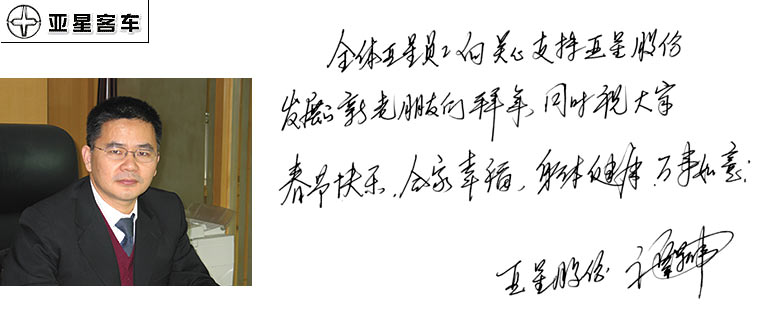 亚星客车
全体亚星员工向关心支持亚星股份
发展的新老朋友们拜年,同时祝大家
春节快乐,合家幸福,身体健康,万事如意!
亚星股份